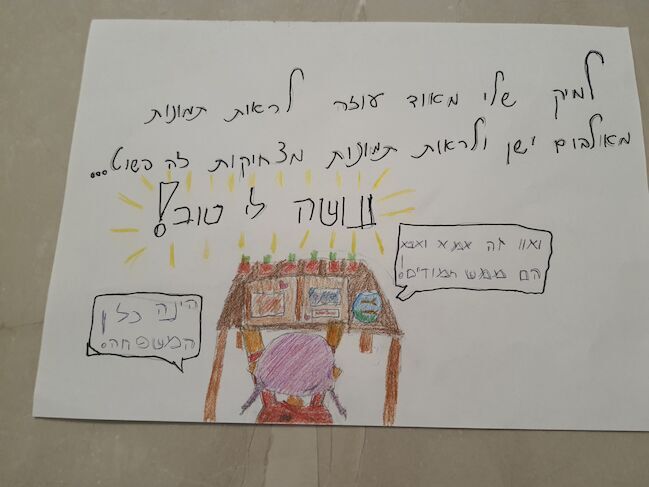 למיק שלי מאוד עוזר לראות תמונות
מאולבום ישן ולראות תמונות מצחיקות זה פשוט...
עושה לי טוב!
וואו זה אמא ואבא
הם ממש חמודים!
הינה כל
המשפחה!